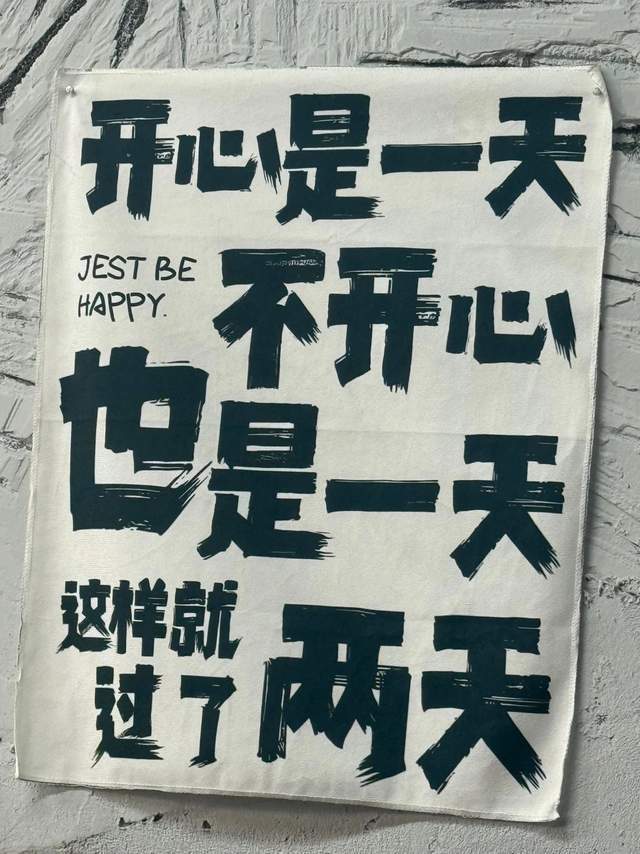 开心是一天
JEST BE
HAPPY.
不开心
也是一天
这样就
过了
两天